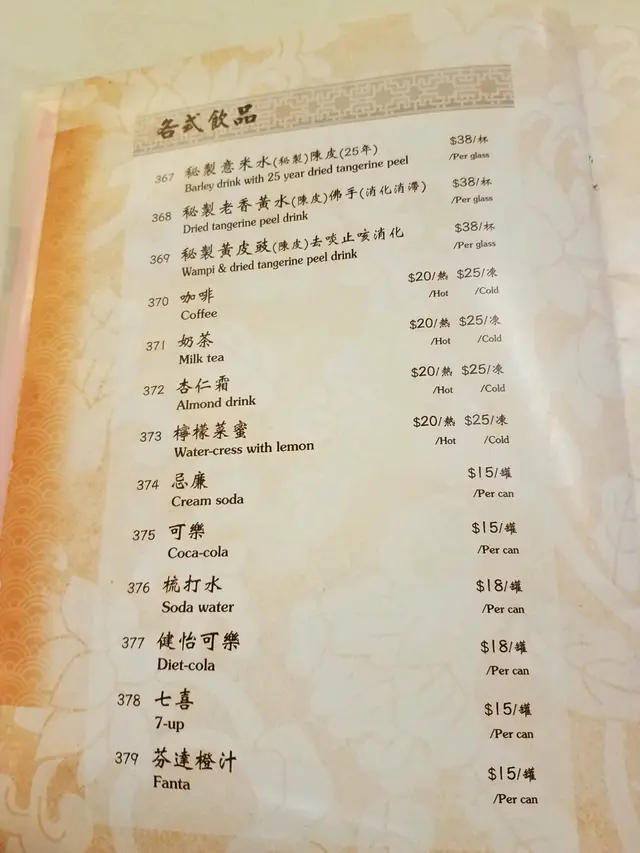 各式飲品
367 秘製意米水(秘製)陳皮(25年) $38/杯
Barley drink with 25 year dried tangerine peel /Per glass
368 秘製老香黃水(陳皮)佛手(消化消滯) $38/杯
Dried tangerine peel drink /Per glass
369 秘製黃皮豉(陳皮)去啖止咳消化 $38/杯
Wampi & dried tangerine peel drink /Per glass
370 咖啡 $20/熱 $25/凍
Coffee /Hot /Cold
371 奶茶 $20/熱 $25/凍
Milk tea /Hot /Cold
372 杏仁霜 $20/熱 $25/凍
Almond drink /Hot /Cold
373 檸檬菜蜜 $20/熱 $25/凍
Water-cress with lemon /Hot /Cold
374 忌廉 $15/罐
Cream soda /Per can
375 可樂 $15/罐
Coca-cola /Per can
376 梳打水 $18/罐
Soda water /Per can
377 健怡可樂 $18/罐
Diet-cola /Per can
378 七喜 $15/罐
7-up /Per can
379 芬達橙汁 $15/罐
Fanta /Per can